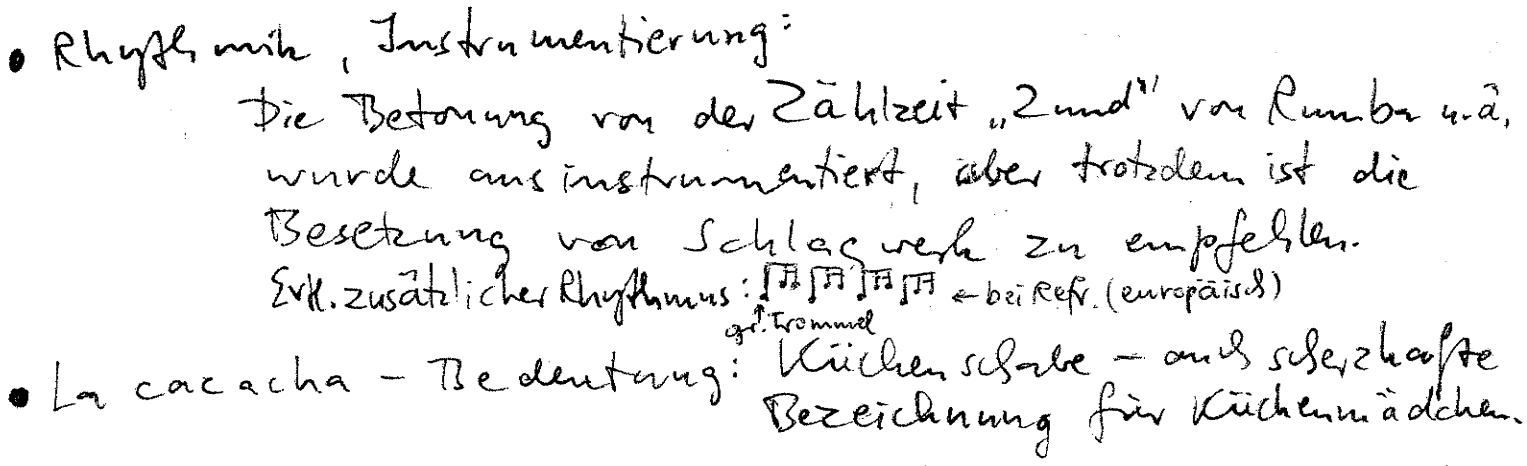 • Rhythmik, Instrumentierung:
Die Betonung von der Zählzeit „2und" von Rumba u.ä.
wurde ausinstrumentiert, aber trotzdem ist die
Besetzung von Schlagwerk zu empfehlen.
Evtl. zusätzlicher Rhythmus: ← bei Refr. (europäisch)
gr. Trommel
• La cacacha – Bedeutung: Küchenschabe – auch scherzhafte
Bezeichnung für Küchenmädchen.